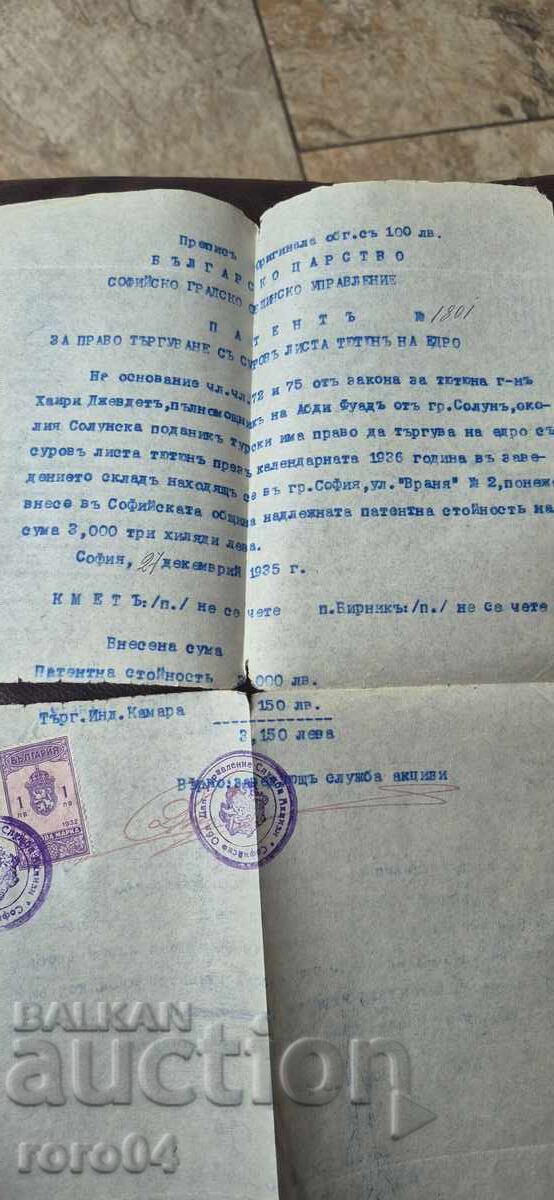 Преписъ оригинала обг.съ 100 лв.
БЪЛГАРСКО ЦАРСТВО
СОФИЙСКО ГРАДСКО ОБЩИНСКО УПРАВЛЕНИЕ
ПАТЕНТЪ № 1801
ЗА ПРАВО ТЪРГУВАНЕ СЪ СУРОВЪ ЛИСТА ТЮТЮНЪ НА ЕДРО
На основание чл.чл.72 и 75 отъ закона за тютюна г-нъ
Хаири Джевдетъ,пълномощникъ на Абди Фуадъ отъ гр.Солунъ,око-
лия Солунска поданикъ турски има право да търгува на едро съ
суровъ листа тютюнъ презъ календарната 1936 година въ заве-
дението складъ находящъ се въ гр.София,ул."Враня" № 2,понеже
внесе въ Софийската община надлежната патентна стойность на
сума 3,000 три хиляди лева.
София, 21 декемврий 1935 г.
КМЕТЪ:/п./ не се чете п.Бирникъ:/п./ не се чете
Внесена сума
Патентна стойность 000 лв.
Търг.Инд.Камара 150 лв.
3,150 лева
Вѣрно:завеждующъ служба акцизи
БЪЛГАРИЯ
1 1
лв лв
1932
ОВА МАРКА
Софийско Общ. Дан. Управление Служба Акцизи
BALKAN
auction
roro04